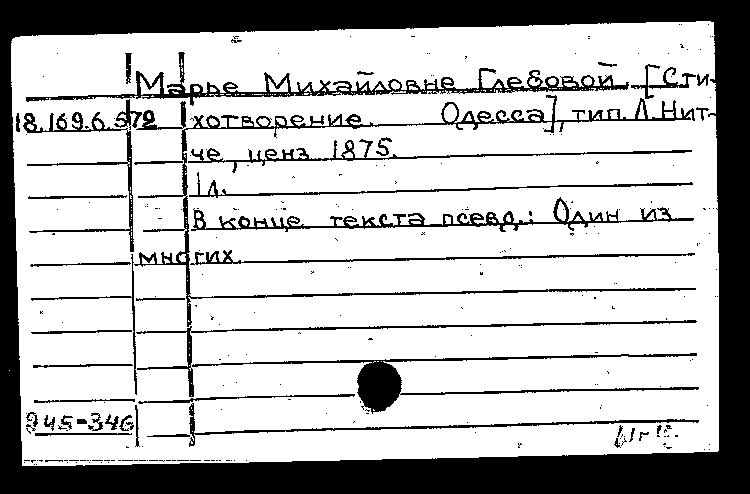 Марье Михайловне Глебовой. [Сти-
18.169.6.572 хотворение. Одесса], тип. Л. Нит-
че, ценз 1875.
1 л.
В конце текста псевд.: Один из
многих.
945-346